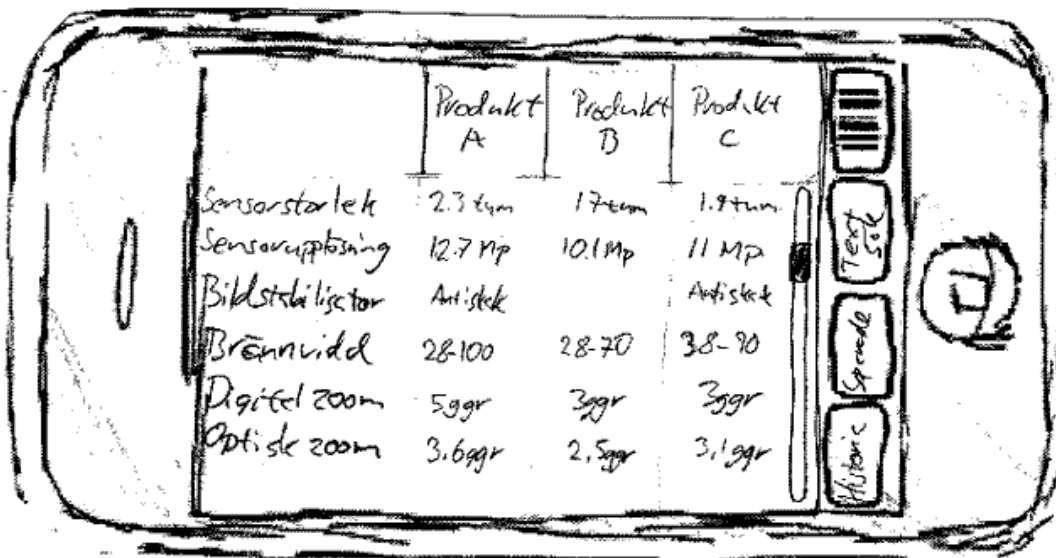 Produkt A Produkt B Produkt C
Sensorstorlek 2.3 tum 17 tum 1.9 tum
Sensorupplösning 12.7 Mp 10.1 Mp 11 Mp
Bildstabilisator Antiskak Antiskak
Brännvidd 28-100 28-70 38-90
Digital zoom 5ggr 3ggr 3ggr
Optisk zoom 3.6ggr 2.5ggr 3.1ggr
Text sök
Sparade
Historic